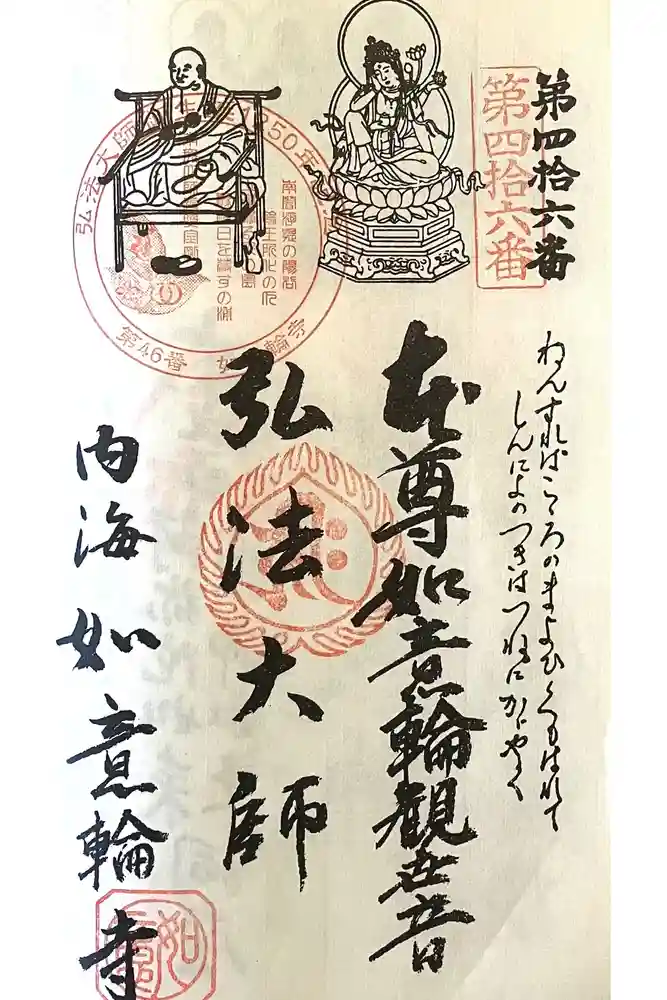 第四拾六番
第四拾六番
ねんすればこころのまよひくもはれて
しんによのつきはつねにかゞやく
本尊如意輪観世音
弘法大師
内海如意輪寺
第46番